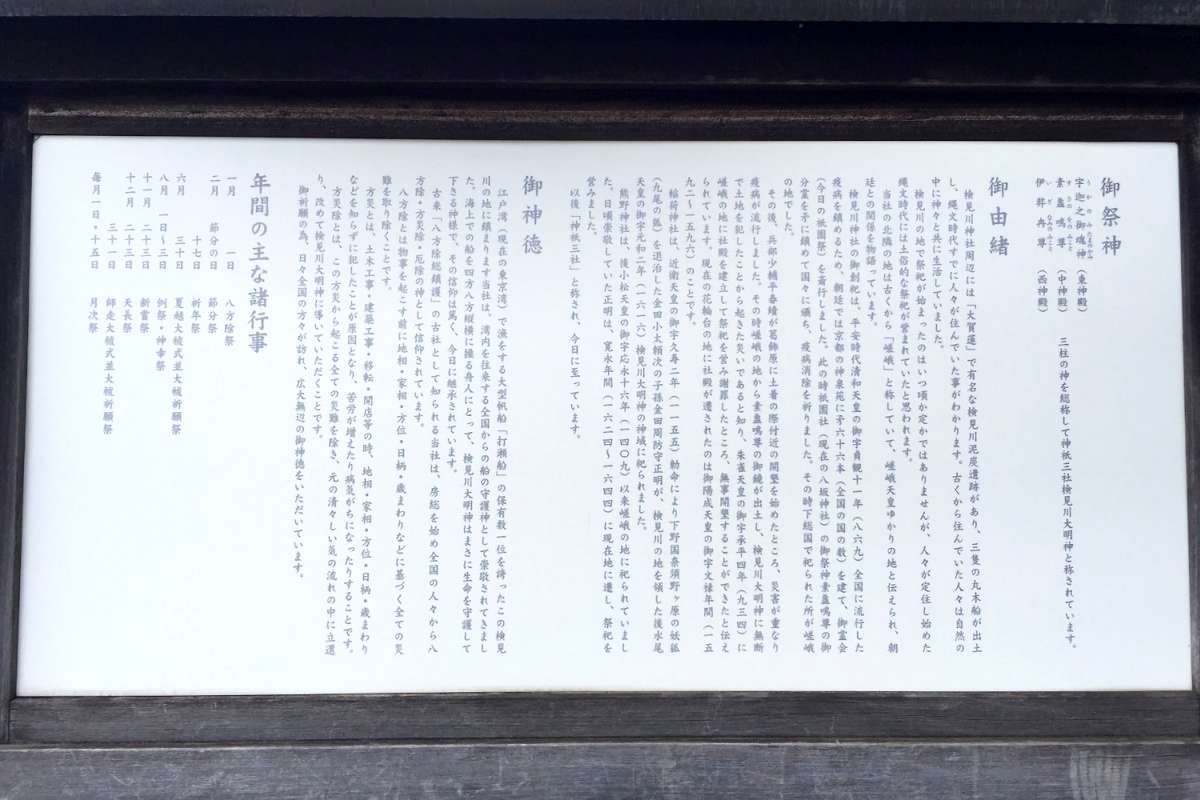 御祭神
宇迦之御魂神 (東神殿)
素盞嗚尊 (中神殿) 三柱の神を総称して神祇三社検見川大明神と称されています。
伊弉冉尊 (西神殿)
御由緒
検見川神社周辺には「大賀蓮」で有名な検見川泥炭遺跡があり、三隻の丸木船が出土
し、縄文時代すでに人々が住んでいた事がわかります。古くから住んでいた人々は自然の
中に神々と共に生活していました。
検見川の地で祭祀が始まったのはいつ頃か定かではありませんが、人々が定住し始めた
縄文時代には土俗的な祭祀が営まれていたと思われます。
当社の北隣の地は古くから「嵯峨」と称していて、嵯峨天皇ゆかりの地と伝えられ、朝
廷との関係を物語っています。
検見川神社の御創祀は、平安時代清和天皇の御宇貞観十一年(八六九)全国に流行した
疫病を鎮めるため、朝廷では京都の神泉苑に矛六十六本(全国の国の数)を建て、御霊会
(今日の祇園祭)を斎行しました。此の時祇園社(現在の八坂神社)の御祭神素盞嗚尊の御
分霊を矛に鎮めて国々に頒ち、疫病消除を祈りました。その時下総国で祀られた所が嵯峨
の地でした。
その後、兵部少輔平春靖が葛飾原に土着の際付近の開墾を始めたところ、災害が重なり
疫病が流行しました。その時嵯峨の地から素盞嗚尊の御鏡が出土し、検見川大明神に無断
で土地を犯したことから起きた災いであると知り、朱雀天皇の御宇承平四年(九三四)に
嵯峨の地に社殿を建立して祭祀を営み謝罪したところ、無事開墾することができたと伝え
られています。現在の花輪台の地に社殿が遷されたのは御陽成天皇の御宇文禄年間(一五
九二〜一五九六)のことです。
稲荷神社は、近衛天皇の御宇久寿二年(一一五五)勅命により下野国奈須野ヶ原の妖狐
(九尾の狐)を退治した金田小太頼次の子孫金田周防守正明が、検見川の地を領した後水尾
天皇の御宇元和二年(一六一六)検見川大明神の神域に祀られました。
熊野神社は、後小松天皇の御宇応永十六年(一四〇九)以来嵯峨の地に祀られていまし
た、日頃崇敬していた正明は、寛永年間(一六二四〜一六四四)に現在地に遷し、祭祀を
営みました。
以後「神祇三社」と称され、今日に至っています。
御神徳
江戸湾(現在の東京湾)で漁をする大型帆船「打瀬船」の保有数一位を誇ったこの検見
川の地に鎮まります当社は、湾内を往来する全国からの船の守護神として崇敬されてきまし
た。海上での船を四方八方縦横に操る舟人にとって、検見川大明神はまさに生命を守護して
下さる神様で、その信仰は篤く、今日に継承されています。
古来「八方除総鎮護」の古社として知られる当社は、房総を始め全国の人々から八
方除・方災除・厄除の神として信仰されています。
八方除とは物事を起こす前に地相・家相・方位・日柄・歳まわりなどに基づく全ての災
難を取り除くことです。
方災とは、土木工事・建築工事・移転・開店等の時、地相・家相・方位・日柄・歳まわり
などを知らずに犯したことが原因となり、苦労が増えたり病気がちになったりすることです。
方災除とは、この方災から起こる全ての災難を除き、元の清々しい気の流れの中に立還
り、改めて検見川大明神に導いていただくことです。
御祈願の為、日々全国の方々が訪れ、広大無辺の御神徳をいただいています。
年間の主な諸行事
一月 一日 八方除祭
二月 節分の日 節分祭
十七日 祈年祭
六月 三十日 夏越大祓式並大祓祈願祭
八月 一日〜三日 例祭・神幸祭
十一月 二十三日 新嘗祭
十二月 二十三日 天長祭
三十一日 師走大祓式並大祓祈願祭
毎月一日・十五日 月次祭